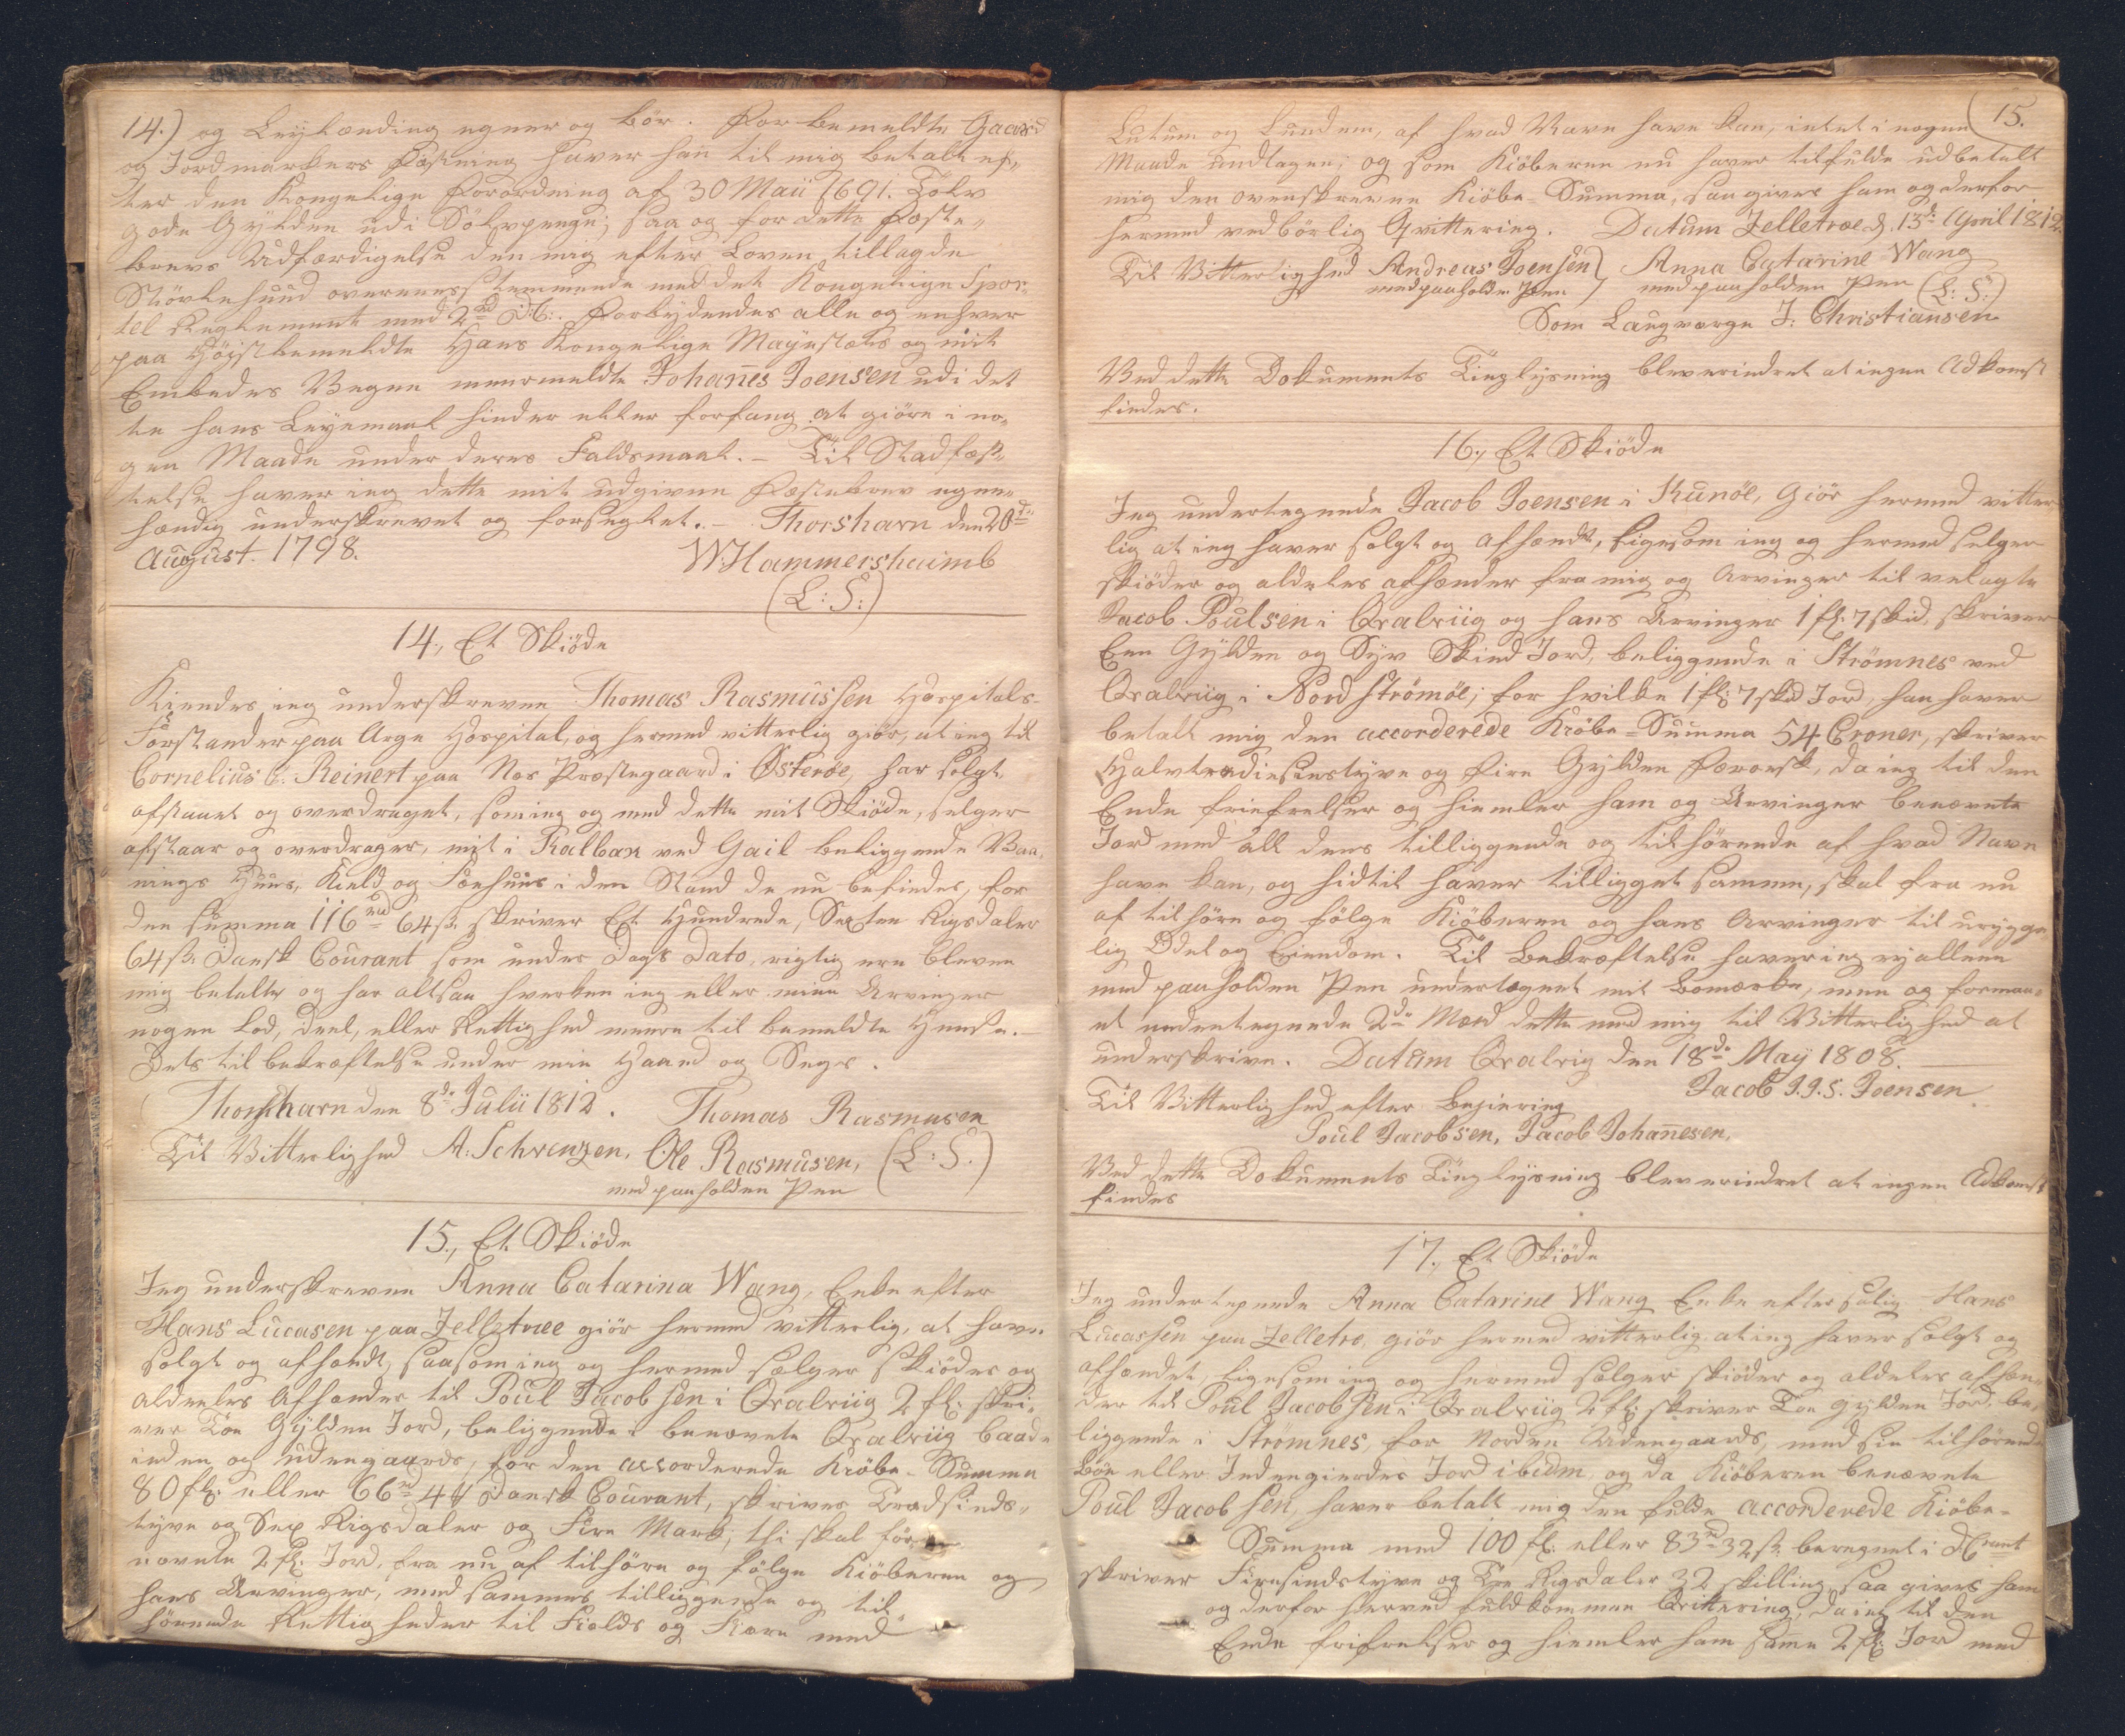 14.) og Leylænding egner og bör. For bemeldte Gaard
og Jordmarkers Fæstning haver han til mig betalt ef„
ter den Kongelige Forordning af 30 Maii 1691. Tolv
gode Gylden udi Sölvpenge; saa og for dette Fæste„
brevs Udfærdigelse den mig efter Loven tillagde
overeensstemmende med det Kongelige Spor„
tel Reglement med 2 rd d: C:. Forbydendes alle og enhver
paa Höystbemeldte Hans Kongelige Mayestæts og mit
Embedes Vegne meermeldte Johannes Joensen udi det
te hans Leyemaal hinder eller forfang at giöre i no„
gen Maade under deres Faldsmaal. - Til Stadfæst„
telse haver ieg dette mit udgivne Fæstebrev egen„
hændig underskrevet og forseglet. - Thorshavn den 20de
August. 1798.
W. Hammershaimb
(L: S:)
14., Et Skiöde
Kiendes ieg underskrevne Thomas Rasmussen Hospitals-
Forstander paa Arge Hospital, og hermed vitterlig giör, at ieg til
Cornelius C. Reinert paa Nes Præstegaard i Österöe, har solgt
afstaaet og overdraget, som ieg og med dette mit Skiöde, selger
afstaar og overdrager, mit i Kalbak ved Gail beliggende Vaa„
nings Huus, Kield og Foehuus i den Stand de nu befindes, for
den summa 116 rd 64 s. skriver Et Hundrede, Sexten Rigsdaler
64 s. Dansk Courant som under Dags Dato, rigtig ere bleven
mig betalte og har altsaa hverken ieg eller mine Arvinger
nogen Lod, deel, eller Rettighed meere til bemeldte Huuse. -
Dets til bekræftelse under min Haand og Segl.
Thorshavn den 8de Julii 1812. Thomas Rasmusen
Til Vitterlighed A: Schrenzen, Ole Rasmusen, (L: S.)
med paaholden Pen
15., Et Skiöde
Jeg underskreven Anna Catarina Wang, Enke efter
Hans Lucasen paa Zelletræe giör hermed vitterlig, at have
solgt og afhændt, saasom ieg og hermed sælger skiöder og
aldeeles afhænder til Poul Jacobsen i Qvalviig 2 fl: skri„
ver Toe Gylden Jord, beliggende i benævnte Qvalviig baade
inden og udengaards, for den accorderede Kiöbe-Summa
80 fl: eller 66 rd 4 # Dansk Courant, skriver Tredsinds„
tyve og Sex Rigsdaler og Fire Mark; thi skal för be„
nævnte 2 fl: Jord, fra nu af tilhöre og fölge Kiöberen og
hans Arvinger, med sammes tilliggende og til„
hörende Rettigheder til Fields og Fiære med
15.
Lutum og Lundum, af hvad Navn have kan, intet i nogen
Maade undtagen; og som Kiöberen nu haver tilfulde udbetalt
mig den ovenskrevne Kiöbe-Summa, saa gives ham og derfor
hermed vedbörlig Qvittering. Datum Zelletræe d. 13de April 1812.
Til Vitterlighed Andreas Joensen Anna Catarine Wang
med paaholden Pen med paaholden Pen (L: S:)
Som Laugværge J: Christiansen
Ved dette Dokuments Tinglysning blev erindret at ingen Adkomst
findes.
16., Et Skiöde
Jeg undertegnede Jacob Joensen i Kunöe, Giör hermed vitter
lig at ieg haver solgt og afhændt, ligesom ieg og hermed selger
skiöder og aldeles afhænder fra mig og Arvinger til velagte
Jacob Poulsen i Qvalviig og hans Arvinger 1 fl: 7 skd, skriver
Een Gylden og Syv Skind Jord, beliggende i Strömnes ved
Qvalviig i Nord Strömöe; for hvilke 1 fl: 7 skd Jord, han haver
betalt mig den accorderede Kiöbe-Summa 54 Croner, skriver
Halvtrediesinstyve og Fire Gylden Færoesk, da ieg til den
Ende friefrelser og hiemler ham og Arvinger benævnte
Jord med all dens tilliggende og tilhörende af hvad Navn
have kan, og hidtil haver tilligget samme, skal fra nu
af tilhöre og fölge Kiöberen og hans Arvinger til urygge
lig Odel og Eiendom. Til Bekræftelse haver ieg ey allene
med paaholden Pen undertegnet mit bomærke, men og forman„
et undertegnede 2de Mænd dette med mig til Vitterlighed at
underskrive. Datum Qvalvig den 18de May 1808.
Jacob J. J. S. Joensen
Til Vitterlighed efter Begiering
Poul Jacobsen, Jacob Johannesen.
Ved dette Dokuments Tinglysning blev erindret at ingen Adkomst
findes
17., Et Skiöde
Jeg undertegnede Anna Catarine Wang Enke efter salig Hans
Lucassen paa Zelletræ, giör hermed vitterlig, at ieg haver solgt og
afhændet, ligesom ieg og hermed sælger skiöder og aldeles afhæn„
der til Poul Jacobsen i Qvalviig 2 fl: skriver Toe Gylden Jord, be„
liggende i Strömnes, for Norden Udengaards, med sin tilhörende
Böe eller Indengierdes Jord ibidm, og da Kiöberen benævnte
Poul Jacobsen, haver betalt mig den fulde accorderede Kiöbe-
Summa med 100 fl: eller 83 rd 32 s. beregnet i d. Crant
skriver Firesindstyve og Tre Rigsdaler 32 skilling, saa gives ham
og derfor herved fuldkommen Qvittering, da ieg til den
Ende frifrelser og hiemler ham samme 2 fl: Jord med